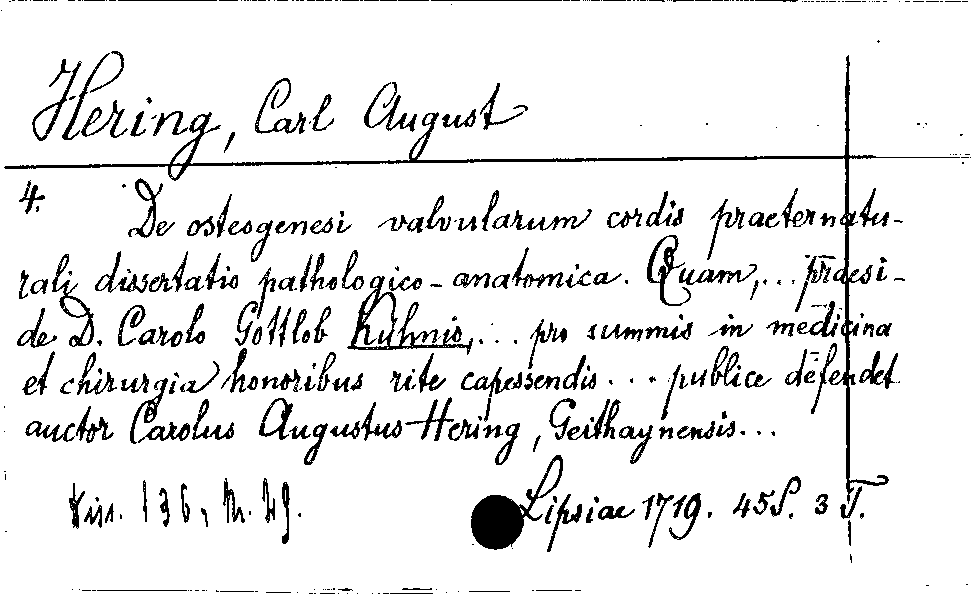 Hering, Carl August
4. De osteogenesi valvularum cordis praeternatu-
rali dissertatio pathologico-anatomica. Quam,... praesi-
de D. Carolo Gottlob Kühnio,... pro summis in medicina
et chirurgia honoribus rite capessendis... publice defendet
auctor Carolus Augustus Hering, Geithaynensis...
Diss. 136, Nr. 29.
Lipsiae 1719. 45 S. 3 T.